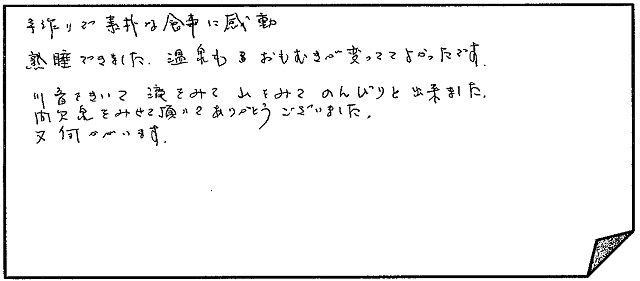 手作りで素朴な食事に感動
熟睡できました。温泉も おもむきが変ってて よかったです。
川音をきいて 滝をみて 山をみて のんびりと 出来ました。
をみせて頂いて ありがとうございました。
又 何かがいます。